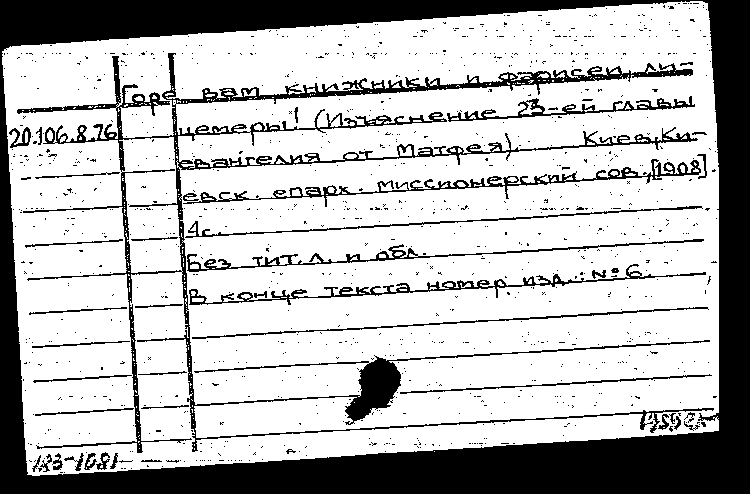 Горе вам, книжники и фарисеи, ли-
20.106.8.76 цемеры! (Изъяснение 23-ей главы
евангелия от Матфея). Киев, Ки-
евск. епарх. миссионерский сов., [1908].
4с.
Без тит. л. и обл.
В конце текста номер изд.: № 6.
183-1081